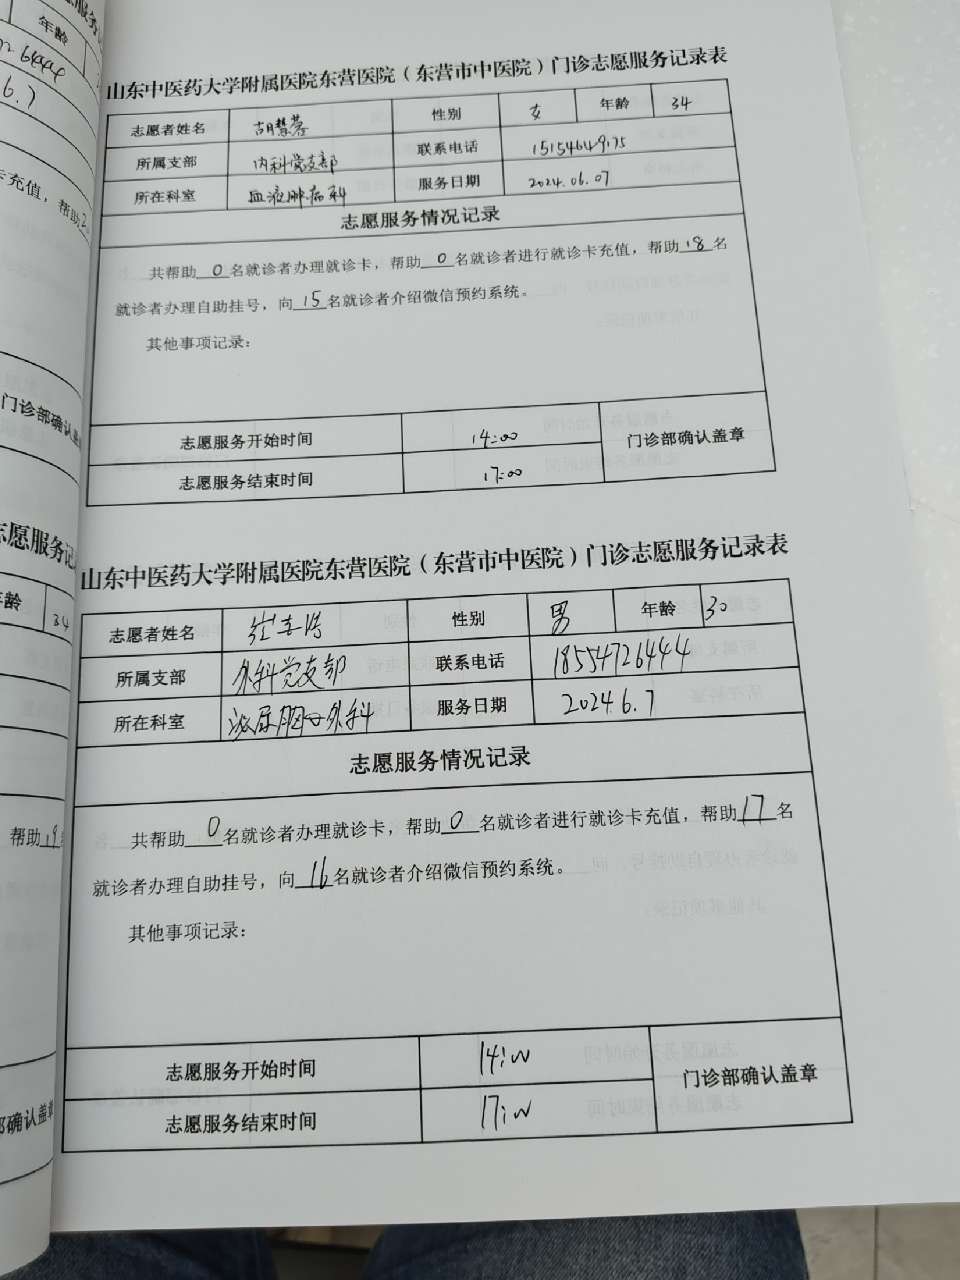 年龄
6.7
卡充值，帮助
门诊部确认盖
志愿服务记
年龄 34
帮助19
部确认盖章
山东中医药大学附属医院东营医院（东营市中医院）门诊志愿服务记录表
志愿者姓名 胡慧蓉 性别 女 年龄 34
所属支部 内科党支部 联系电话
所在科室 血液肿病科 服务日期 2024.06.07
志愿服务情况记录
共帮助0名就诊者办理就诊卡，帮助0名就诊者进行就诊卡充值，帮助18名
就诊者办理自助挂号，向15名就诊者介绍微信预约系统。
其他事项记录：
志愿服务开始时间 14:00
门诊部确认盖章
志愿服务结束时间 17:00
山东中医药大学附属医院东营医院（东营市中医院）门诊志愿服务记录表
志愿者姓名 性别 男 年龄 30
所属支部 外科党支部 联系电话 18554726444
所在科室 泌尿胸心外科 服务日期 2024.6.7
志愿服务情况记录
共帮助0名就诊者办理就诊卡，帮助0名就诊者进行就诊卡充值，帮助17名
就诊者办理自助挂号，向16名就诊者介绍微信预约系统。
其他事项记录：
志愿服务开始时间 14:00
门诊部确认盖章
志愿服务结束时间 17:00